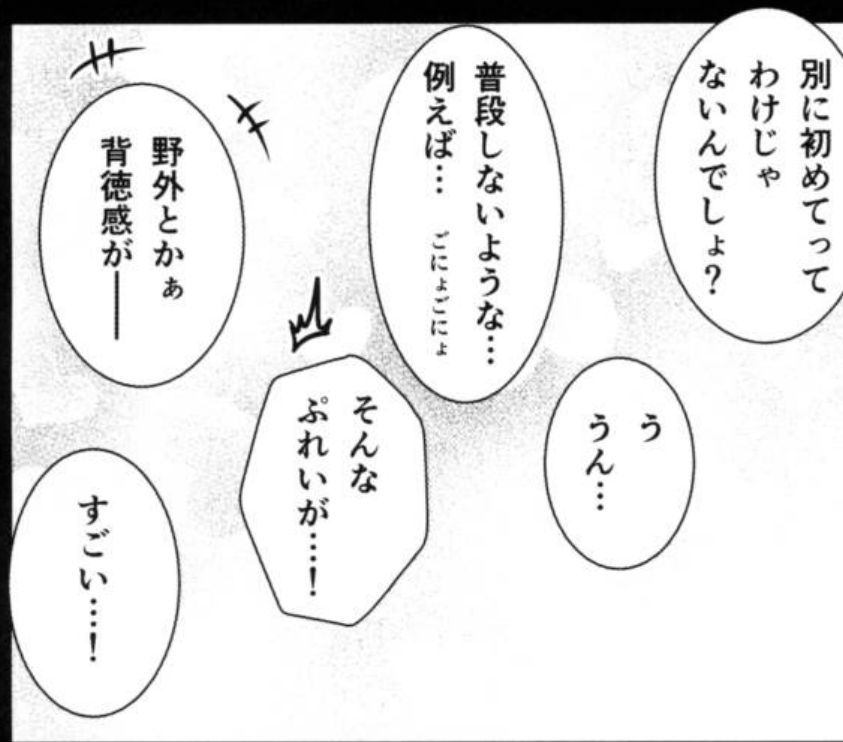 別に初めてって
わけじゃ
ないんでしょ？
う
うん…
普段しないような…
例えば…
ごにょごにょ
そんな
ぷれいが…！
野外とかぁ
背徳感が――
すごい…！